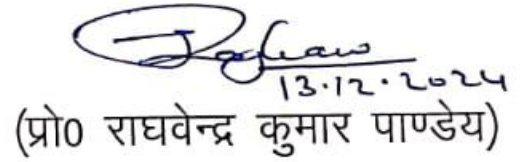 Raghaw
13.12.2024
(प्रो0 राघवेन्द्र कुमार पाण्डेय)